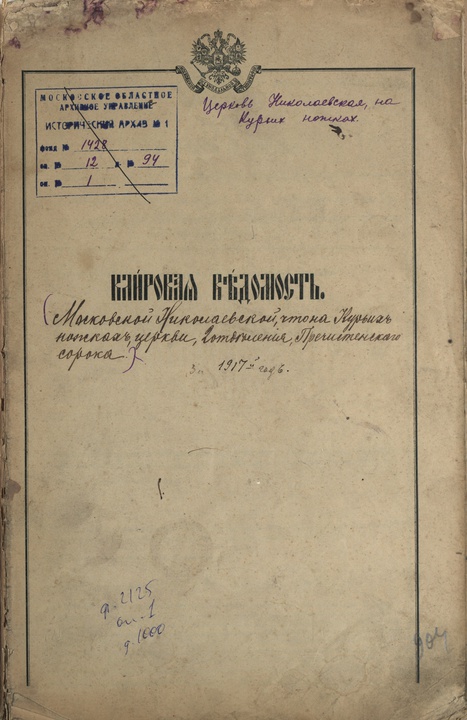 МОСКОВСКОЕ ОБЛАСТНОЕ
АРХИВНОЕ УПРАВЛЕНИЕ
ИСТОРИЧЕСКИЙ АРХИВ № 1
фонд № 1428
оп. № 12 д. № 94
оп. № 1
Церковь Николаевская, на
Курьих ножках.
КЛИ́РОВАЯ ВѢ́ДОМОСТЬ.
(Московской Николаевской, что на Курьихъ
ножкахъ, церкви, 2 отдѣленія, Пречистенскаго
сорока)
За 1917й годъ.
ф. 2125
оп. 1
д. 1000